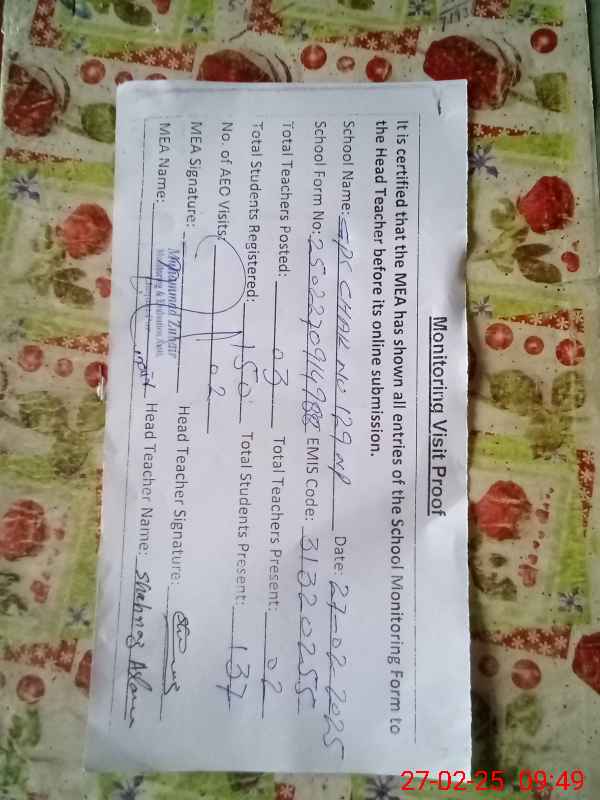 Monitoring Visit Proof
It is certified that the MEA has shown all entries of the School Monitoring Form to
the Head Teacher before its online submission.
School Name: GPS CHAK NO 129 NP Date: 27-02-2025
School Form No: EMIS Code: 31320255
Total Teachers Posted: 03 Total Teachers Present: 02
Total Students Registered: 150 Total Students Present: 137
No. of AEO Visits: 02
MEA Signature: Head Teacher Signature:
MEA Name: Muhammad Zubair Head Teacher Name: Shehnaz Aslam
Monitoring & Evaluation Asstt.
27-02-25 09:49